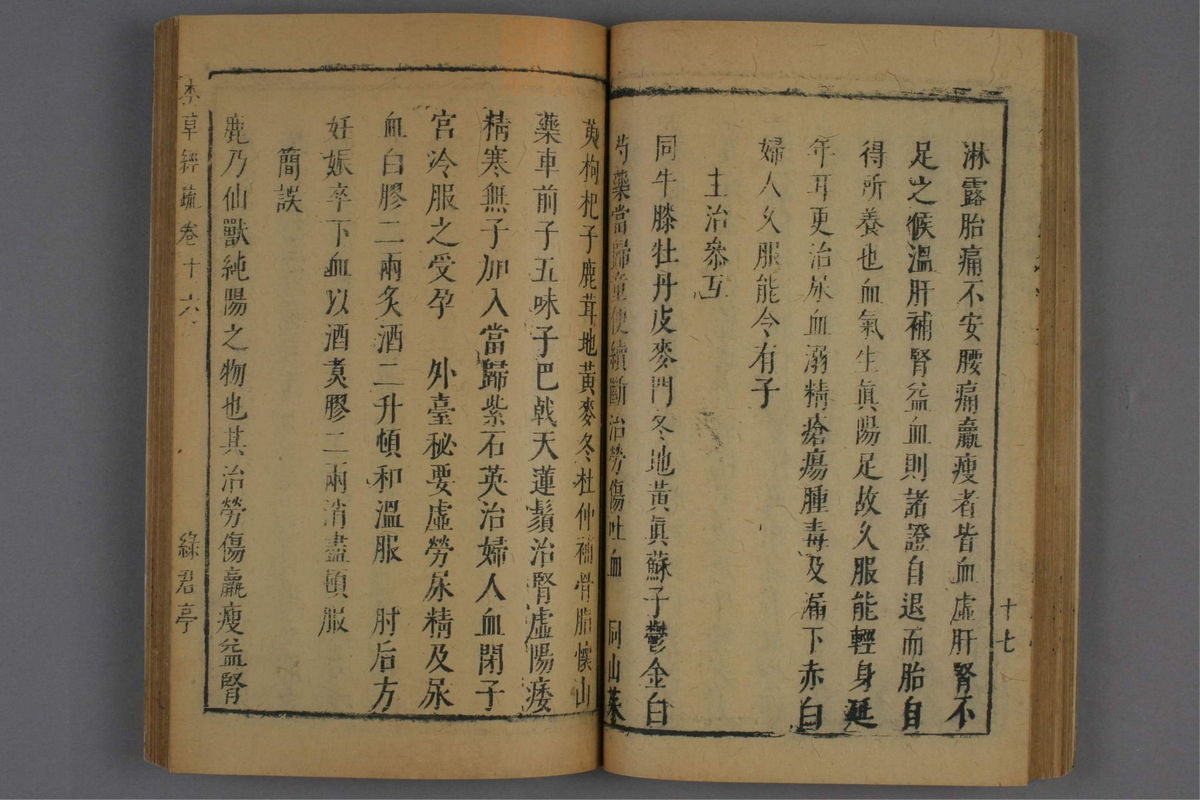 十七
淋露胎痛不安腰痛羸瘦者皆血虛肝腎不
足之候溫肝補腎益血則諸證自退而胎自
得所養也血氣生眞陽足故久服能輕身延
年耳更治尿血溺精瘡瘍腫毒及漏下赤白
婦人久服能令有子
主治參互
同牛膝牡丹皮麥門冬地黃眞蘇子鬱金白
芍藥當歸童便續斷治勞傷吐血　同山茱
萸枸杞子鹿茸地黃麥冬杜仲補骨脂懷山
藥車前子五味子巴戟天蓮鬚治腎虛陽痿
精寒無子加入當歸紫石英治婦人血閉子
宮冷服之受孕　外臺秘要虛勞尿精及尿
血白膠二兩炙酒二升頓和溫服　肘后方
妊娠卒下血以酒煑膠二兩消盡頓服
簡誤
鹿乃仙獸純陽之物也其治勞傷羸瘦益腎
本草經疏卷十六　綠君亭